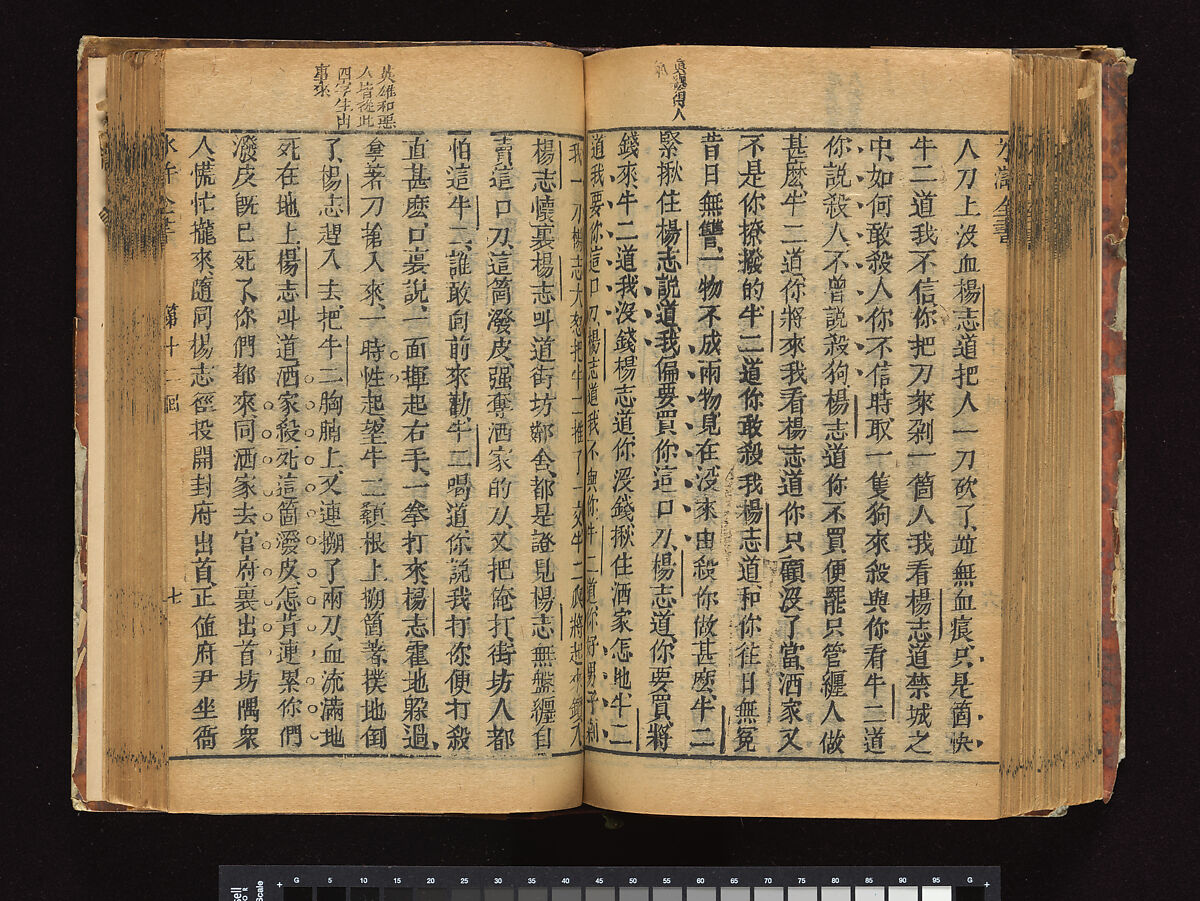 水滸全書
人刀上沒血楊志道把人一刀砍了、並無血痕、只是箇快
牛二道我不信你把刀來剁一箇人我看楊志道禁城之
中、如何敢殺人你不信時取一隻狗來殺與你看牛二道
你說殺人、不曾說殺狗楊志道你不買便罷只管纏人做
甚麽牛二道、你將來我看楊志道你只顧沒了當、洒家又
不是你撩撥的牛二道你敢殺我楊志道、和你徃日無冤
昔日無讐、一物不成兩物見在、沒來由殺你做甚麽、牛二
真纏得人
緊揪住楊志說道我偏要買你這口刀、楊志道、你要買、將
錢來、牛二道我沒錢楊志道、你沒錢揪住洒家怎地、牛二
道我要你這口刀楊志道我不與你牛二道你好男子剁
我一刀楊志大怒把牛二推了一交牛二爬將起來鑽入
楊志懷裏楊志叫道街坊鄰舍都是證見楊志無盤纏自
賣這口刀、這箇潑皮强奪洒家的刀、又把俺打、街坊人都
怕這牛二、誰敢向前來勸、牛二喝道、你說我打你便打殺
直甚麽、口裏說、一面揮起右手、一拳打來、楊志霍地躲過、
英雄和惡
人皆從此
四字生出
事來
拿著刀搶入來、一時性起、望牛二顙根上搠箇著、撲地倒
了、楊志趕入去、把牛二胸脯上、又連搠了兩刀、血流滿地
死在地上、楊志叫道、洒家殺死這箇潑皮、怎肯連累你們
潑皮旣已死了、你們都來同洒家去官府裏出首、坊隅衆
人慌忙攏來、隨同楊志徑投開封府出首、正値府尹坐衙
水滸全書 第十二囘 七
G 5 10 15 20 25 30 35 40 45 50 55 60 65 70 75 80 85 90 95 G